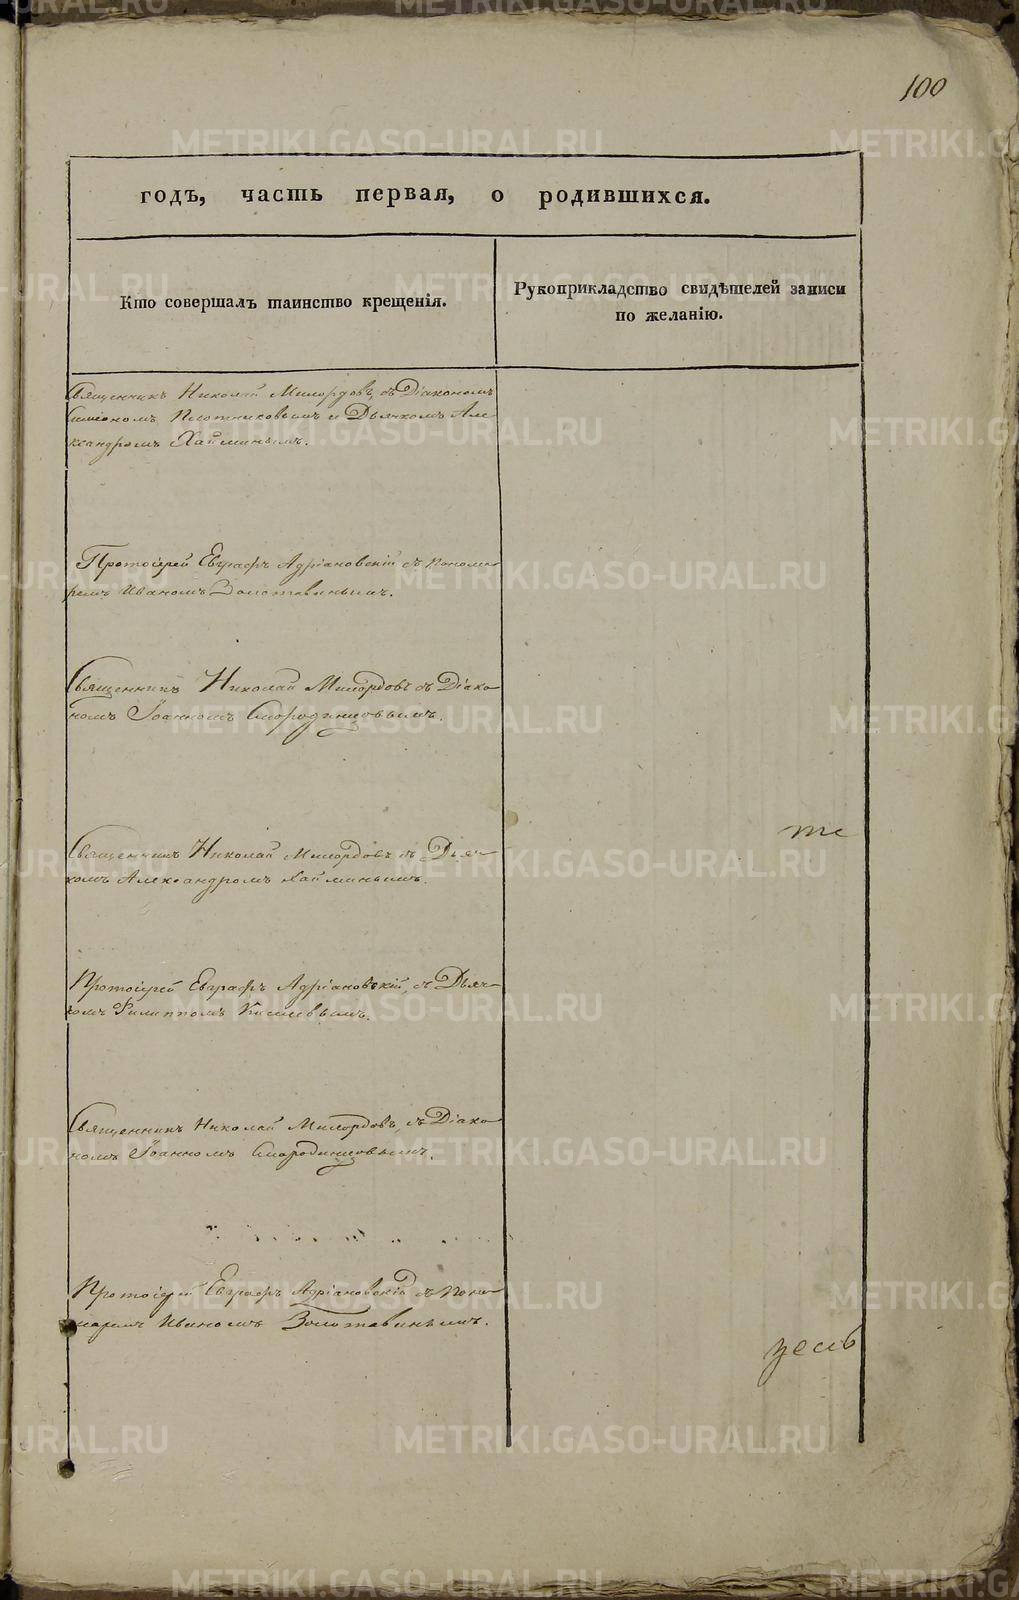 100
годъ, часть первая, о родившихся.
Кто совершалъ таинство крещенія.
Рукоприкладство свидѣтелей записи
по желанію.
Священникъ Николай Милордовъ, съ Діакономъ
Симеономъ Плотниковымъ и Дьячкомъ Але-
ксандромъ Хайминымъ.
Протоіерей Евграфъ Адріановскій съ Понома-
ремъ Иваномъ Золотавинымъ.
Священникъ Николай Милордовъ съ Діако-
номъ Іоанномъ Смородинцовымъ.
те
Священникъ Николай Милордовъ съ Дьяч-
комъ Александромъ Хайминымъ.
Протоіерей Евграфъ Адріановскій, съ Дьяч-
комъ Филиппомъ
Священникъ Николай Милордовъ, съ Діако-
номъ Іоанномъ Смородинцовымъ.
Протоіерей Евграфъ Адріановскій съ Поно-
маремъ Иваномъ Золотавинымъ.
METRIKI.GASO-URAL.RU